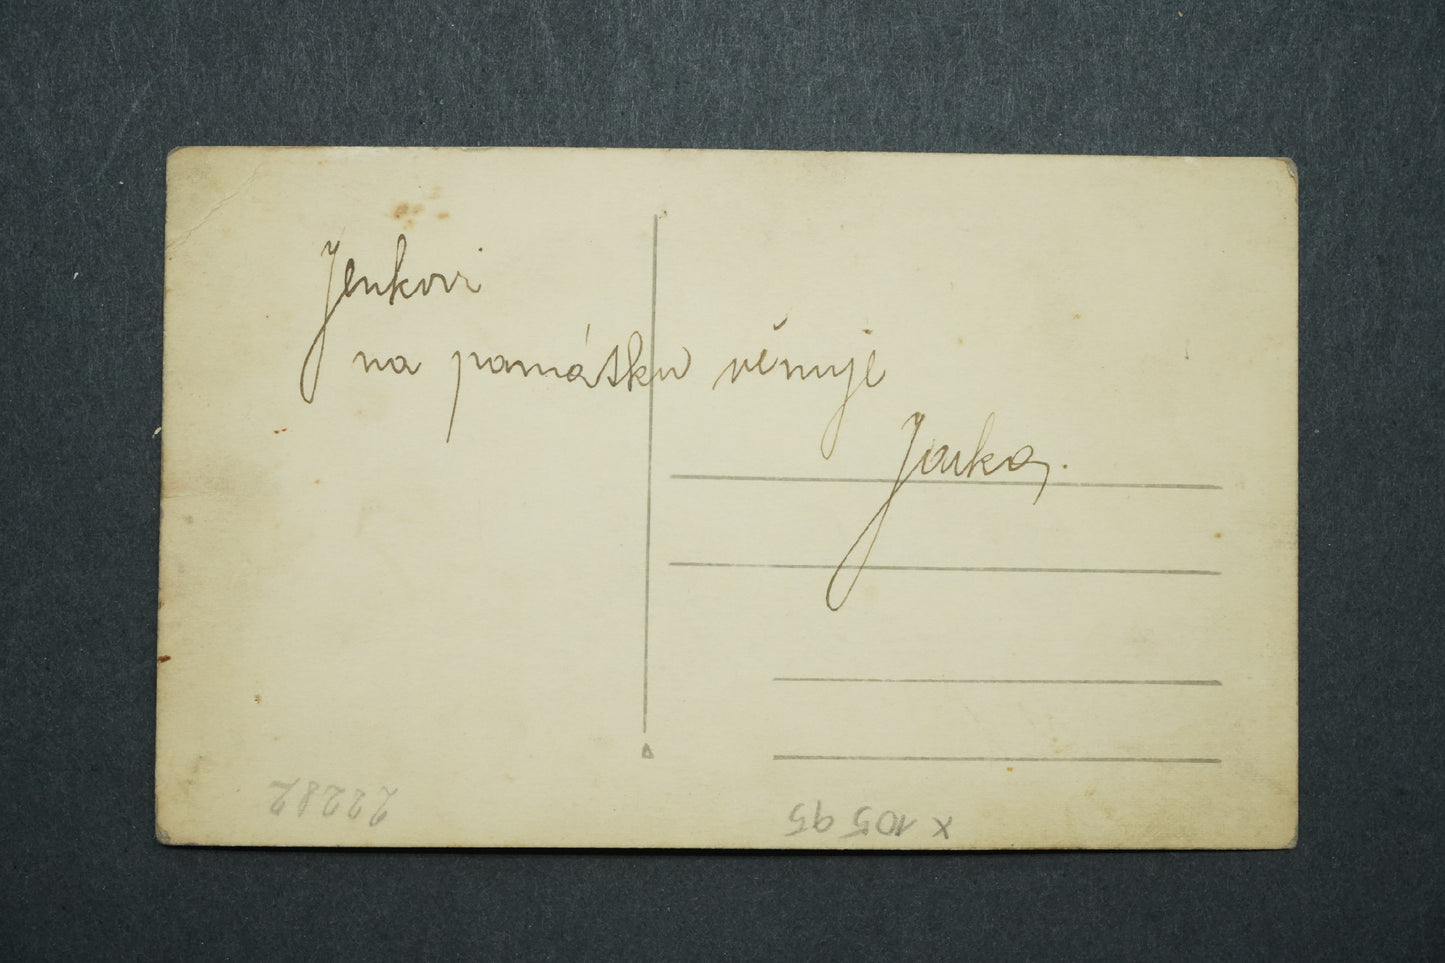 Jenkovi
na památku věnuje
Jarka.
22282
x 10595